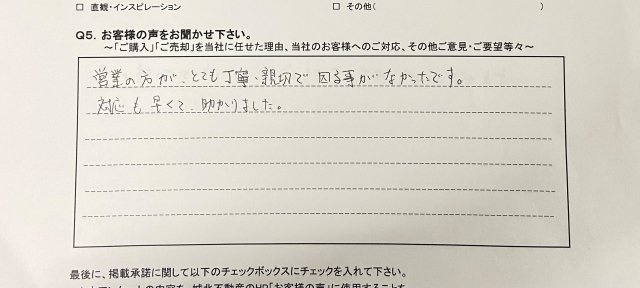 □ 直観・インスピレーション □ その他( )
Q5. お客様の声をお聞かせ下さい。
～「ご購入」「ご売却」を当社に任せた理由、当社のお客様へのご対応、その他ご意見・ご要望等々～
営業の方が、とても丁寧・親切で 困る事がなかったです。
対応も早くて、助かりました。
最後に、掲載承諾に関して以下のチェックボックスにチェックを入れて下さい。
アンケートの内容を、城北不動産のHP「お客様の声」に使用することを